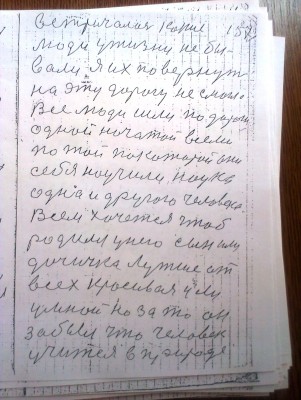 встричался какие 158
люди ужизни не бы-
вали я их повернут
на эту дорогу не смог.
Все люди шли по дороги
одной начатой всеми
по той покоторой они
себя научили, наука
одна и другого человека
Всем хочется чтоб
родили унего сын или
дочичка лутше от
всех красивая или
умной но за то он
забыли что человек
учится в природе